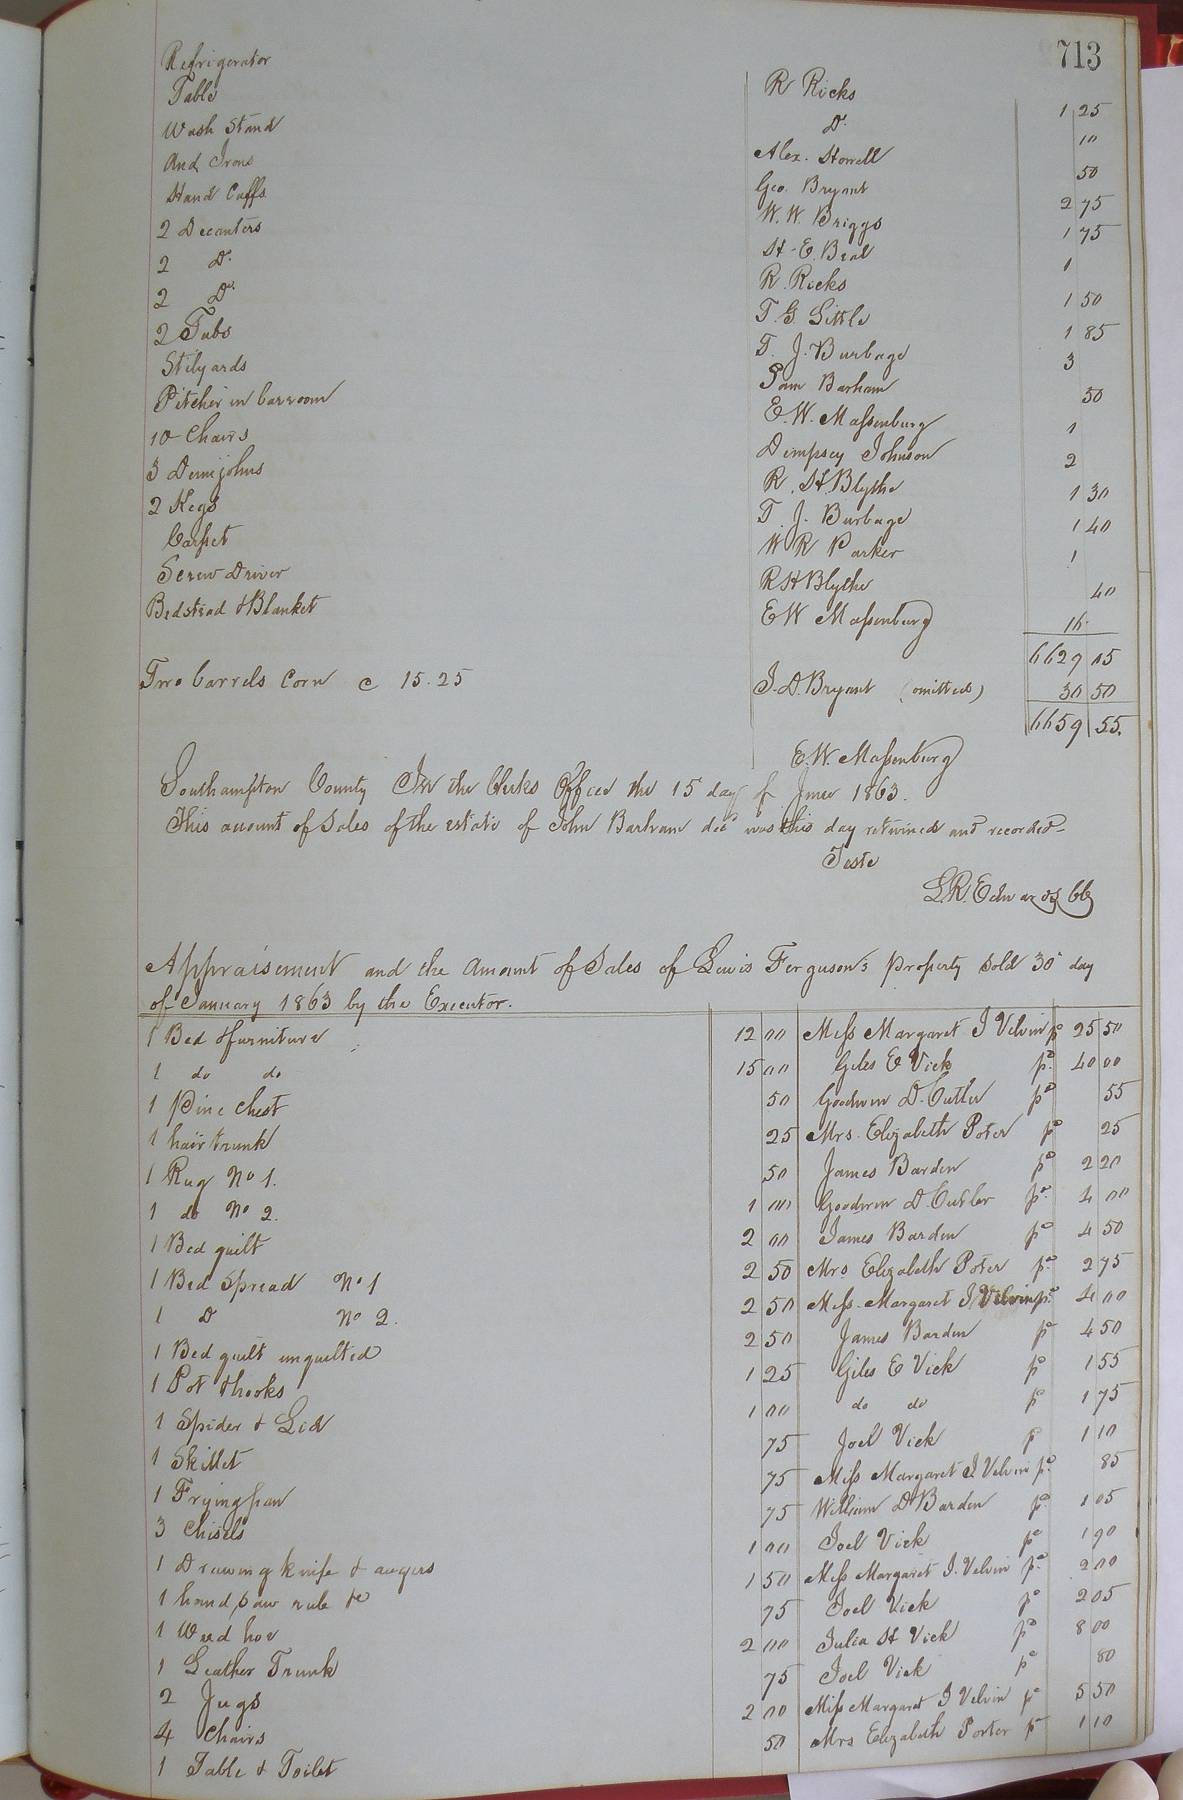 713
Refrigerator R Ricks 1 25
Table Do 10
Wash Stand Alex. Howell 50
And Irons Geo. Bryant 2 75
Hand Cuffs W. W. Briggs 1 75
2 Decanters H. E. Beal 1
2 Do R. Ricks 1 50
2 Do T. G. Little 1 85
2 Tubs T. J. Burbage 3
Stilyards Sam Barham 50
Pitcher in barroom E. W. Massenburg 1
10 Chairs Dempsey Johnson 2
3 Demijohns R. H. Blythe 1 30
2 Kegs T. J. Burbage 1 40
Carpet W R Parker 1
Screw Driver R H Blythe 40
Bedstead & Blanket E W Massenburg 16
6629 05
Two barrels Corn @ 15.25 J. D. Bryant (omitted) 30 50
6659 55
E. W. Massenburg
Southampton County In the Clerks Office the 15 day of June 1863.
This account of Sales of the estate of John Barham decd was this day returned and recorded
Teste
L. R. Edwards Clk
Appraisement and the Amount of Sales of Lewis Ferguson's Property Sold 30 day
of January 1863 by the Executor.
1 Bed & furniture 12 00 Miss Margaret J Velvin pd 25 50
1 do do 15 00 Giles E Vick pd 40 00
1 Pine Chest 50 Goodwin D. Cutler pd 55
1 hair trunk 25 Mrs. Elizabeth Porter pd 25
1 Rug No 1. 50 James Barden pd 2 20
1 do No 2. 1 00 Goodwin D. Cutler pd 4 00
1 Bed quilt 2 00 James Barden pd 4 50
1 Bed Spread No 1 2 50 Mrs Elizabeth Porter pd 2 75
1 Do No 2. 2 50 Miss Margaret J Velvin pd 4 00
1 Bed quilt unquilted 2 50 James Barden pd 4 50
1 Pot & hooks 1 25 Giles E Vick pd 1 55
1 Spider & Lid 1 00 do do pd 1 75
1 Skillet 75 Joel Vick pd 1 10
1 Fryingpan 75 Miss Margaret J. Velvin pd 85
3 Chisels 75 William D Barden pd 1 05
1 Drawing knife & augers 1 00 Joel Vick pd 1 90
1 hand saw rule &c 1 50 Miss Margaret J. Velvin pd 2 00
1 Weed hoe 75 Joel Vick pd 2 05
1 Leather Trunk 2 00 Julia H Vick pd 8 00
2 Jugs 75 Joel Vick pd 80
4 Chairs 2 00 Miss Margaret J Velvin pd 5 50
1 Table & Toilet 50 Mrs Elizabeth Porter pd 1 10